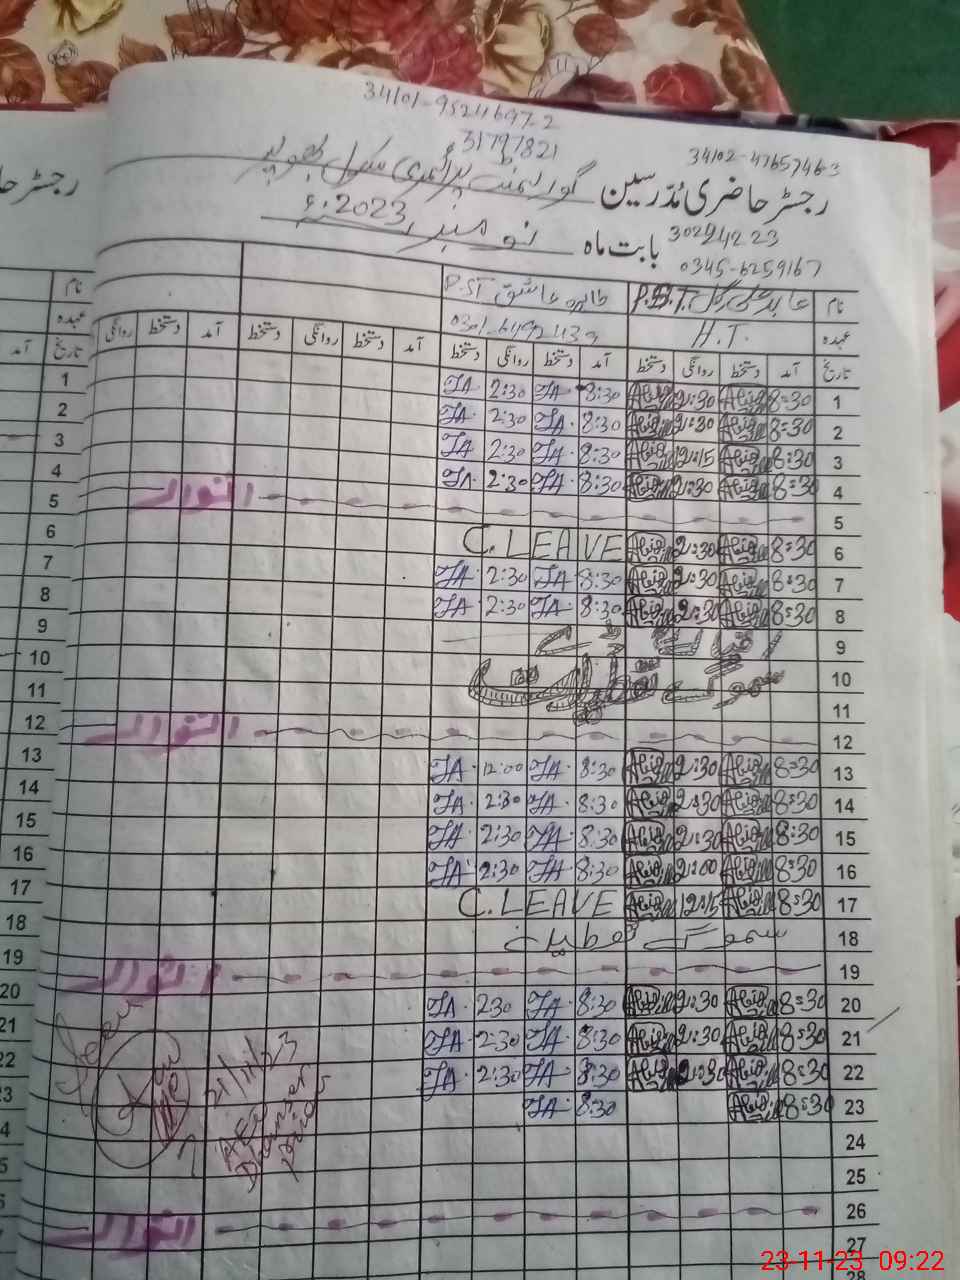 34101-9524697-2
31797821
34102-4765746-3
رجسٹر حاضری مُدرسین گورنمنٹ پرائمری سکول
30294223
بابت ماہ نومبر 2023ء
0345-6259167
نام عابد علی گل P.S.T. طاہرہ عاشق P.S.T
عہدہ H.T. 0301-6492439
تاریخ آمد دستخط روانگی دستخط آمد دستخط روانگی دستخط آمد دستخط روانگی دستخط آمد دستخط روانگی
1 8:30 Abid 2:30 Abid 8:30 TA 2:30 TA 1
2 8:30 Abid 2:30 Abid 8:30 TA 2:30 TA 2
3 8:30 Abid 12:15 Abid 8:30 TA 2:30 TA 3
4 8:30 Abid 2:30 Abid 8:30 TA 2:30 TA 4
5 اتوار 5
6 8:30 Abid 2:30 Abid C. LEAVE 6
7 8:30 Abid 2:30 Abid 8:30 TA 2:30 TA 7
8 8:30 Abid 2:30 Abid 8:30 TA 2:30 TA 8
9 9
10 سموگ تعطیلات 10
11 11
12 اتوار 12
13 8:30 Abid 2:30 Abid 8:30 TA 12:00 TA 13
14 8:30 Abid 2:30 Abid 8:30 TA 2:30 TA 14
15 8:30 Abid 2:30 Abid 8:30 TA 2:30 TA 15
16 8:30 Abid 2:00 Abid 8:30 TA 2:30 TA 16
17 8:30 Abid 12:15 Abid C. LEAVE 17
18 سموگ تعطیل 18
19 اتوار 19
20 8:30 Abid 2:30 Abid 8:30 TA 2:30 TA 20
21 8:30 Abid 2:30 Abid 8:30 TA 2:30 TA 21
22 8:30 Abid 2:30 Abid 8:30 TA 2:30 TA 22
23 8:30 Abid 8:30 TA
24
25
26 اتوار
27
28
Seen
21/11/23
AEO
رجسٹر
نام
عہدہ
تاریخ آمد
23-11-23 09:22